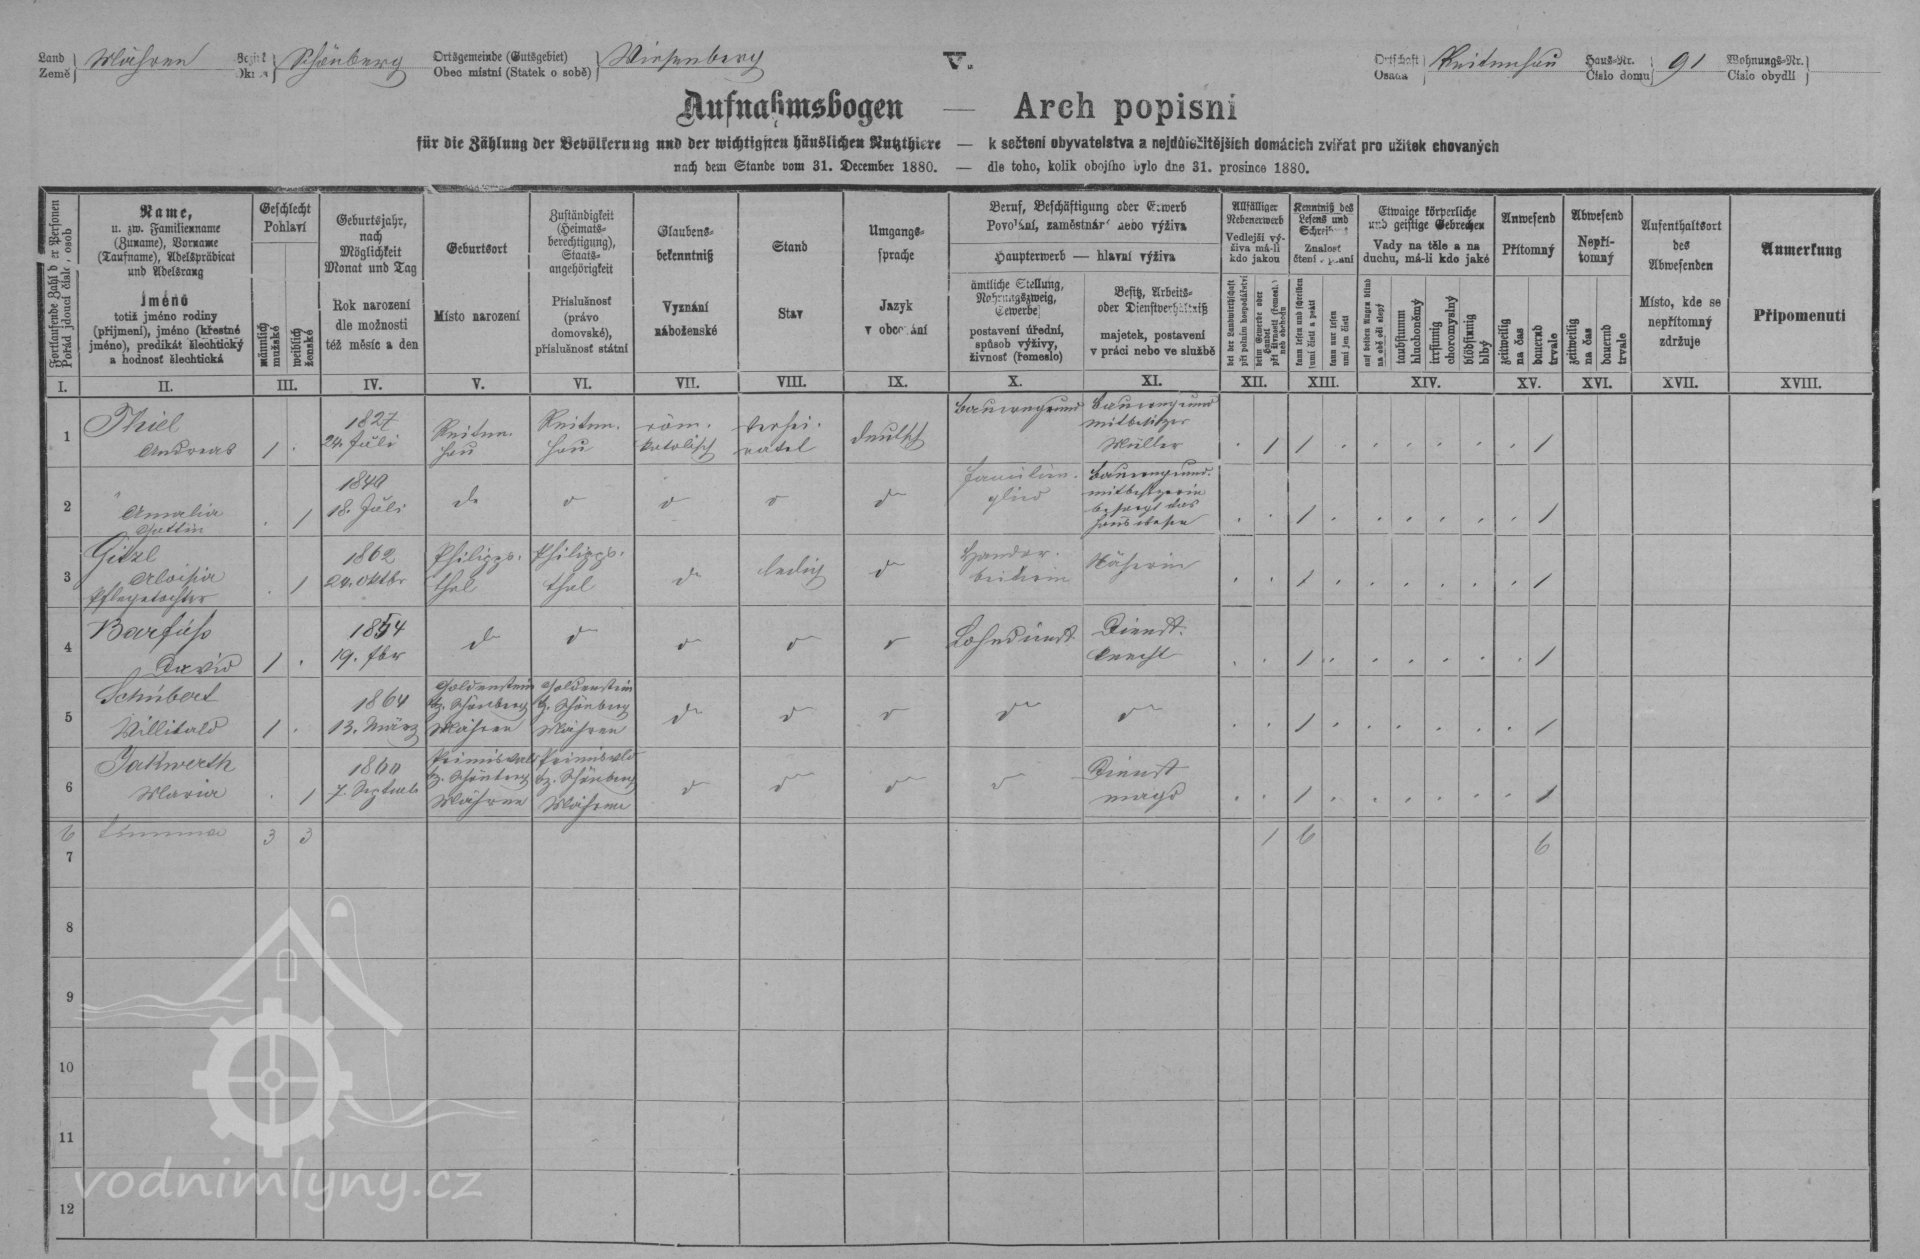 Land Mähren Bezirk Schönberg Ortsgemeinde (Gutsgebiet) Wiesenberg V. Ortschaft Reitenhau Haus-Nr. 91 Wohnungs-Nr.
Země Okres Obec místní (Statek o sobě) Osada Číslo domu Číslo obydlí
Aufnahmsbogen — Arch popisní
für die Zählung der Bevölkerung und der wichtigsten häuslichen Nutzthiere — k sečtení obyvatelstva a nejdůležitějších domácích zvířat pro užitek chovaných
nach dem Stande vom 31. December 1880. — dle toho, kolik obojího bylo dne 31. prosince 1880.
Fortlaufende Zahl der Personen
Pořád jdoucí číslo osob
Name,
u. zw. Familienname
(Zuname), Vorname
(Taufname), Adelsprädicat
und Adelsrang
Jméno
totiž jméno rodiny
(příjmení), jméno (křestné
jméno), predikát šlechtický
a hodnost šlechtická
Geschlecht
Pohlaví
männlich
mužské
weiblich
ženské
Geburtsjahr,
nach
Möglichkeit
Monat und Tag
Rok narození
dle možnosti
též měsíc a den
Geburtsort
Místo narození
Zuständigkeit
(Heimats-
berechtigung),
Staats-
angehörigkeit
Příslušnost
(právo
domovské),
příslušnost státní
Glaubens-
bekenntniß
Vyznání
náboženské
Stand
Stav
Umgangs-
sprache
Jazyk
v obcování
Beruf, Beschäftigung oder Erwerb
Povolání, zaměstnání nebo výživa
Haupterwerb — hlavní výživa
ämtliche Stellung,
Nahrungszweig,
Gewerbe
postavení úřední,
spůsob výživy,
živnost (řemeslo)
Besitz, Arbeits-
oder Dienstverhältniß
majetek, postavení
v práci nebo ve službě
Allfälliger
Nebenerwerb
Vedlejší vý-
živa má-li
kdo jakou
bei der Landwirthschaft
při polním hospodářství
beim Gewerbe oder
Handel
při živnosti (řemesle)
neb obchodu
Kenntniß des
Lesens und
Schreibens
Znalost
čtení a psaní
kann lesen und schreiben
umí čísti a psáti
kann nur lesen
umí jen čísti
Etwaige körperliche
und geistige Gebrechen
Vady na těle a na
duchu, má-li kdo jaké
auf beiden Augen blind
na obě oči slepý
taubstumm
hluchoněmý
irrsinnig
choromyslný
blödsinnig
blbý
Anwesend
Přítomný
zeitweilig
na čas
dauernd
trvale
Abwesend
Nepří-
tomný
zeitweilig
na čas
dauernd
trvale
Aufenthaltsort
des
Abwesenden
Místo, kde se
nepřítomný
zdržuje
Anmerkung
Připomenutí
I. II. III. IV. V. VI. VII. VIII. IX. X. XI. XII. XIII. XIV. XV. XVI. XVII. XVIII.
1 Thiel Andreas 1 . 1827 24. Juli Reitenhau Reitenhau röm. katolisch verheiratet deutsch Bauerngrund Bauerngrund mitbesitzer Müller . 1 1 . . . . . . 1
2 " Amalia Gattin . 1 1840 18. Juli do do do do do Familienglied Bauerngrund mitbesitzerin besorgt das Hauswesen . . 1 . . . . . . 1
3 Gitzl Aloisia Pflegetochter . 1 1862 Philippsthal Philippsthal do ledig do Handarbeiterin Näherin . . 1 . . . . . . 1
4 Barfuss David 1 . 1854 19. do do do do do Lohndienst Dienstknecht . . 1 . . . . . . 1
5 Schubert Willibald 1 . 1864 13. März Goldenstein Bz. Schönberg Mähren Goldenstein Bz. Schönberg Mähren do do do do do . . 1 . . . . . . 1
6 Jakwerth Maria . 1 1860 7. Septemb Primiswald Bz. Schönberg Mähren Primiswald Bz. Schönberg Mähren do do do do Dienstmagd . . 1 . . . . . . 1
6 Summa 3 3 1 6 6
7
8
9
10
11
12
vodnimlyny.cz